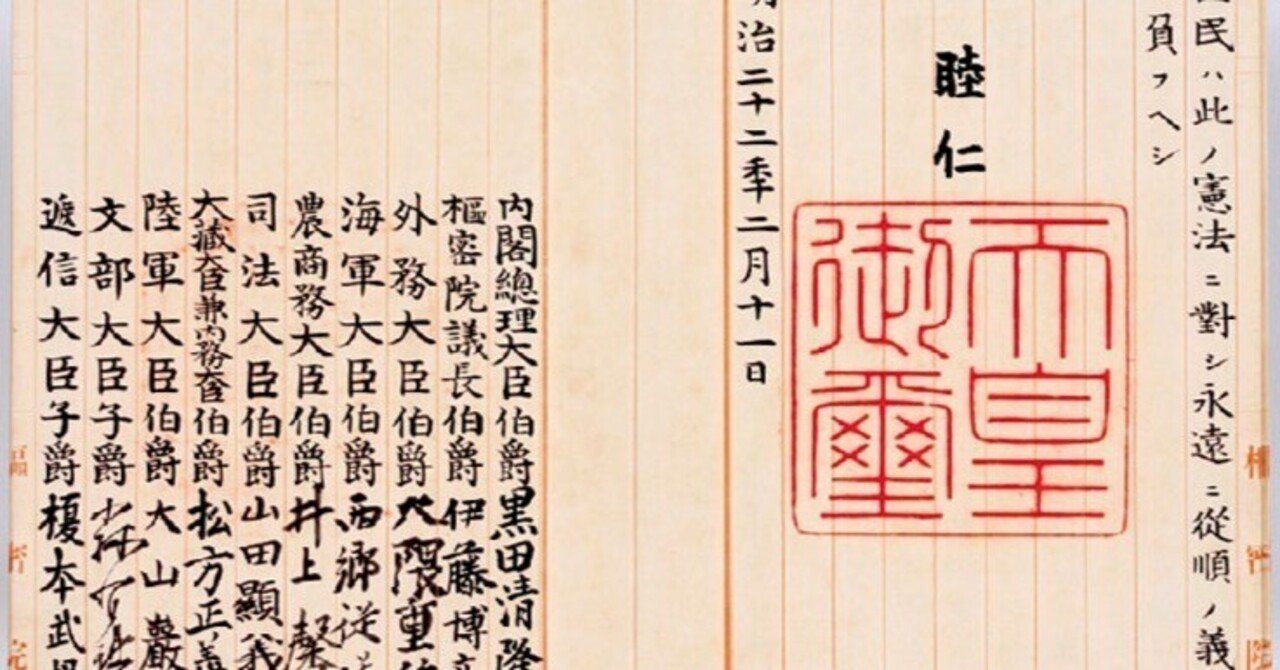 民ハ此ノ憲法ニ對シ永遠ニ從順ノ義
負フヘシ
睦仁
天皇御璽
治二十二年二月十一日
內閣總理大臣伯爵黒田清隆
樞密院議長伯爵伊藤博
外務大臣伯爵大隈重
海軍大臣伯爵西郷従
農商務大臣伯爵井上馨
司法大臣伯爵山田顯義
大藏大臣兼內務大臣伯爵松方正義
陸軍大臣伯爵大山巖
文部大臣子爵
遞信大臣子爵榎本武
樞密院